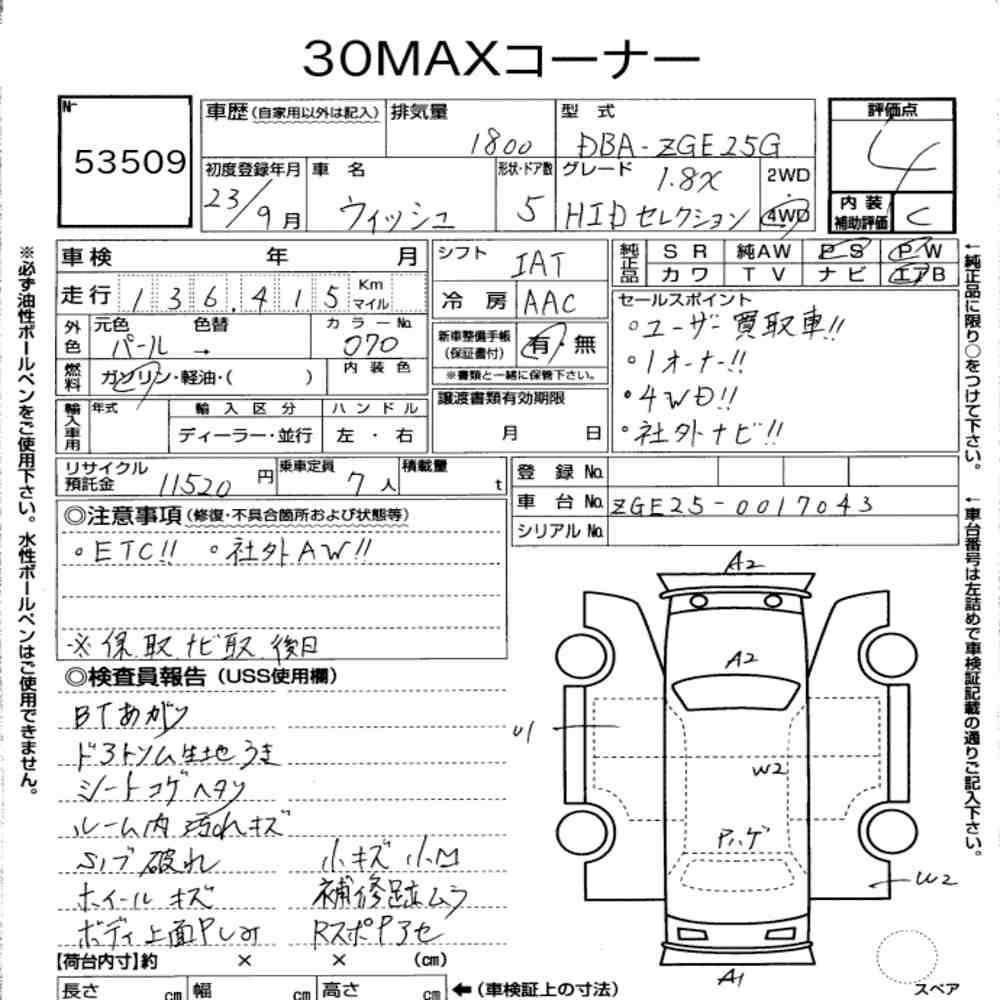 30MAXコーナー
No.
53509
車歴(自家用以外は記入) 排気量 型式 評価点
1800 DBA-ZGE25G 4
初度登録年月 車名 形状・ドア数 グレード 2WD・4WD
23/9月 ウィッシュ 5 1.8X HIDセレクション
内装補助評価 C
車検 年 月
走行 136,415 Km マイル
外色 元色 色替 カラーNo.
パール → 070
燃料 ガソリン・軽油・( ) 内装色
輸入車用 年式 輸入区分 ハンドル
ディーラー・並行 左・右
シフト IAT
冷房 AAC
新車整備手帳(保証書付) 有・無
※書類と一緒に保管下さい。
譲渡書類有効期限
月 日
純正品 SR 純AW PS PW
カワ TV ナビ エアB
セールスポイント
○ユーザー買取車!!
○1オーナー!!
・4WD!!
・社外ナビ!!
リサイクル預託金 11520円 乗車定員 7人 積載量 t
登録No.
車台No. ZGE25-0017043
シリアルNo.
◎注意事項(修復・不具合箇所および状態等)
○ETC!! ○社外AW!!
※保取 ナビ取 後日
◎検査員報告(USS使用欄)
BTあがり
シートコゲ ヘタリ
ルーム内 汚れキズ
破れ 小キズ 小凹
ホイールキズ 補修跡ムラ
ボディ上面
【荷台内寸】約 × × (cm)
長さ cm 幅 cm 高さ cm ←(車検証上の寸法)
A2
A2
U1
W2
Pハゲ
W2
A1
スペア
※必ず油性ボールペンをご使用下さい。水性ボールペンはご使用できません。
←純正品に限り○をつけて下さい。
←車台番号は左詰めで車検証記載の通りご記入下さい。